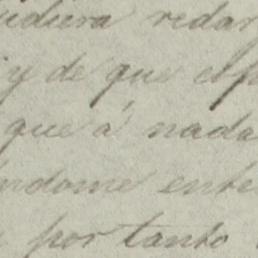 udiera redar
y de que el p
que á nada
ndome ente
por tanto